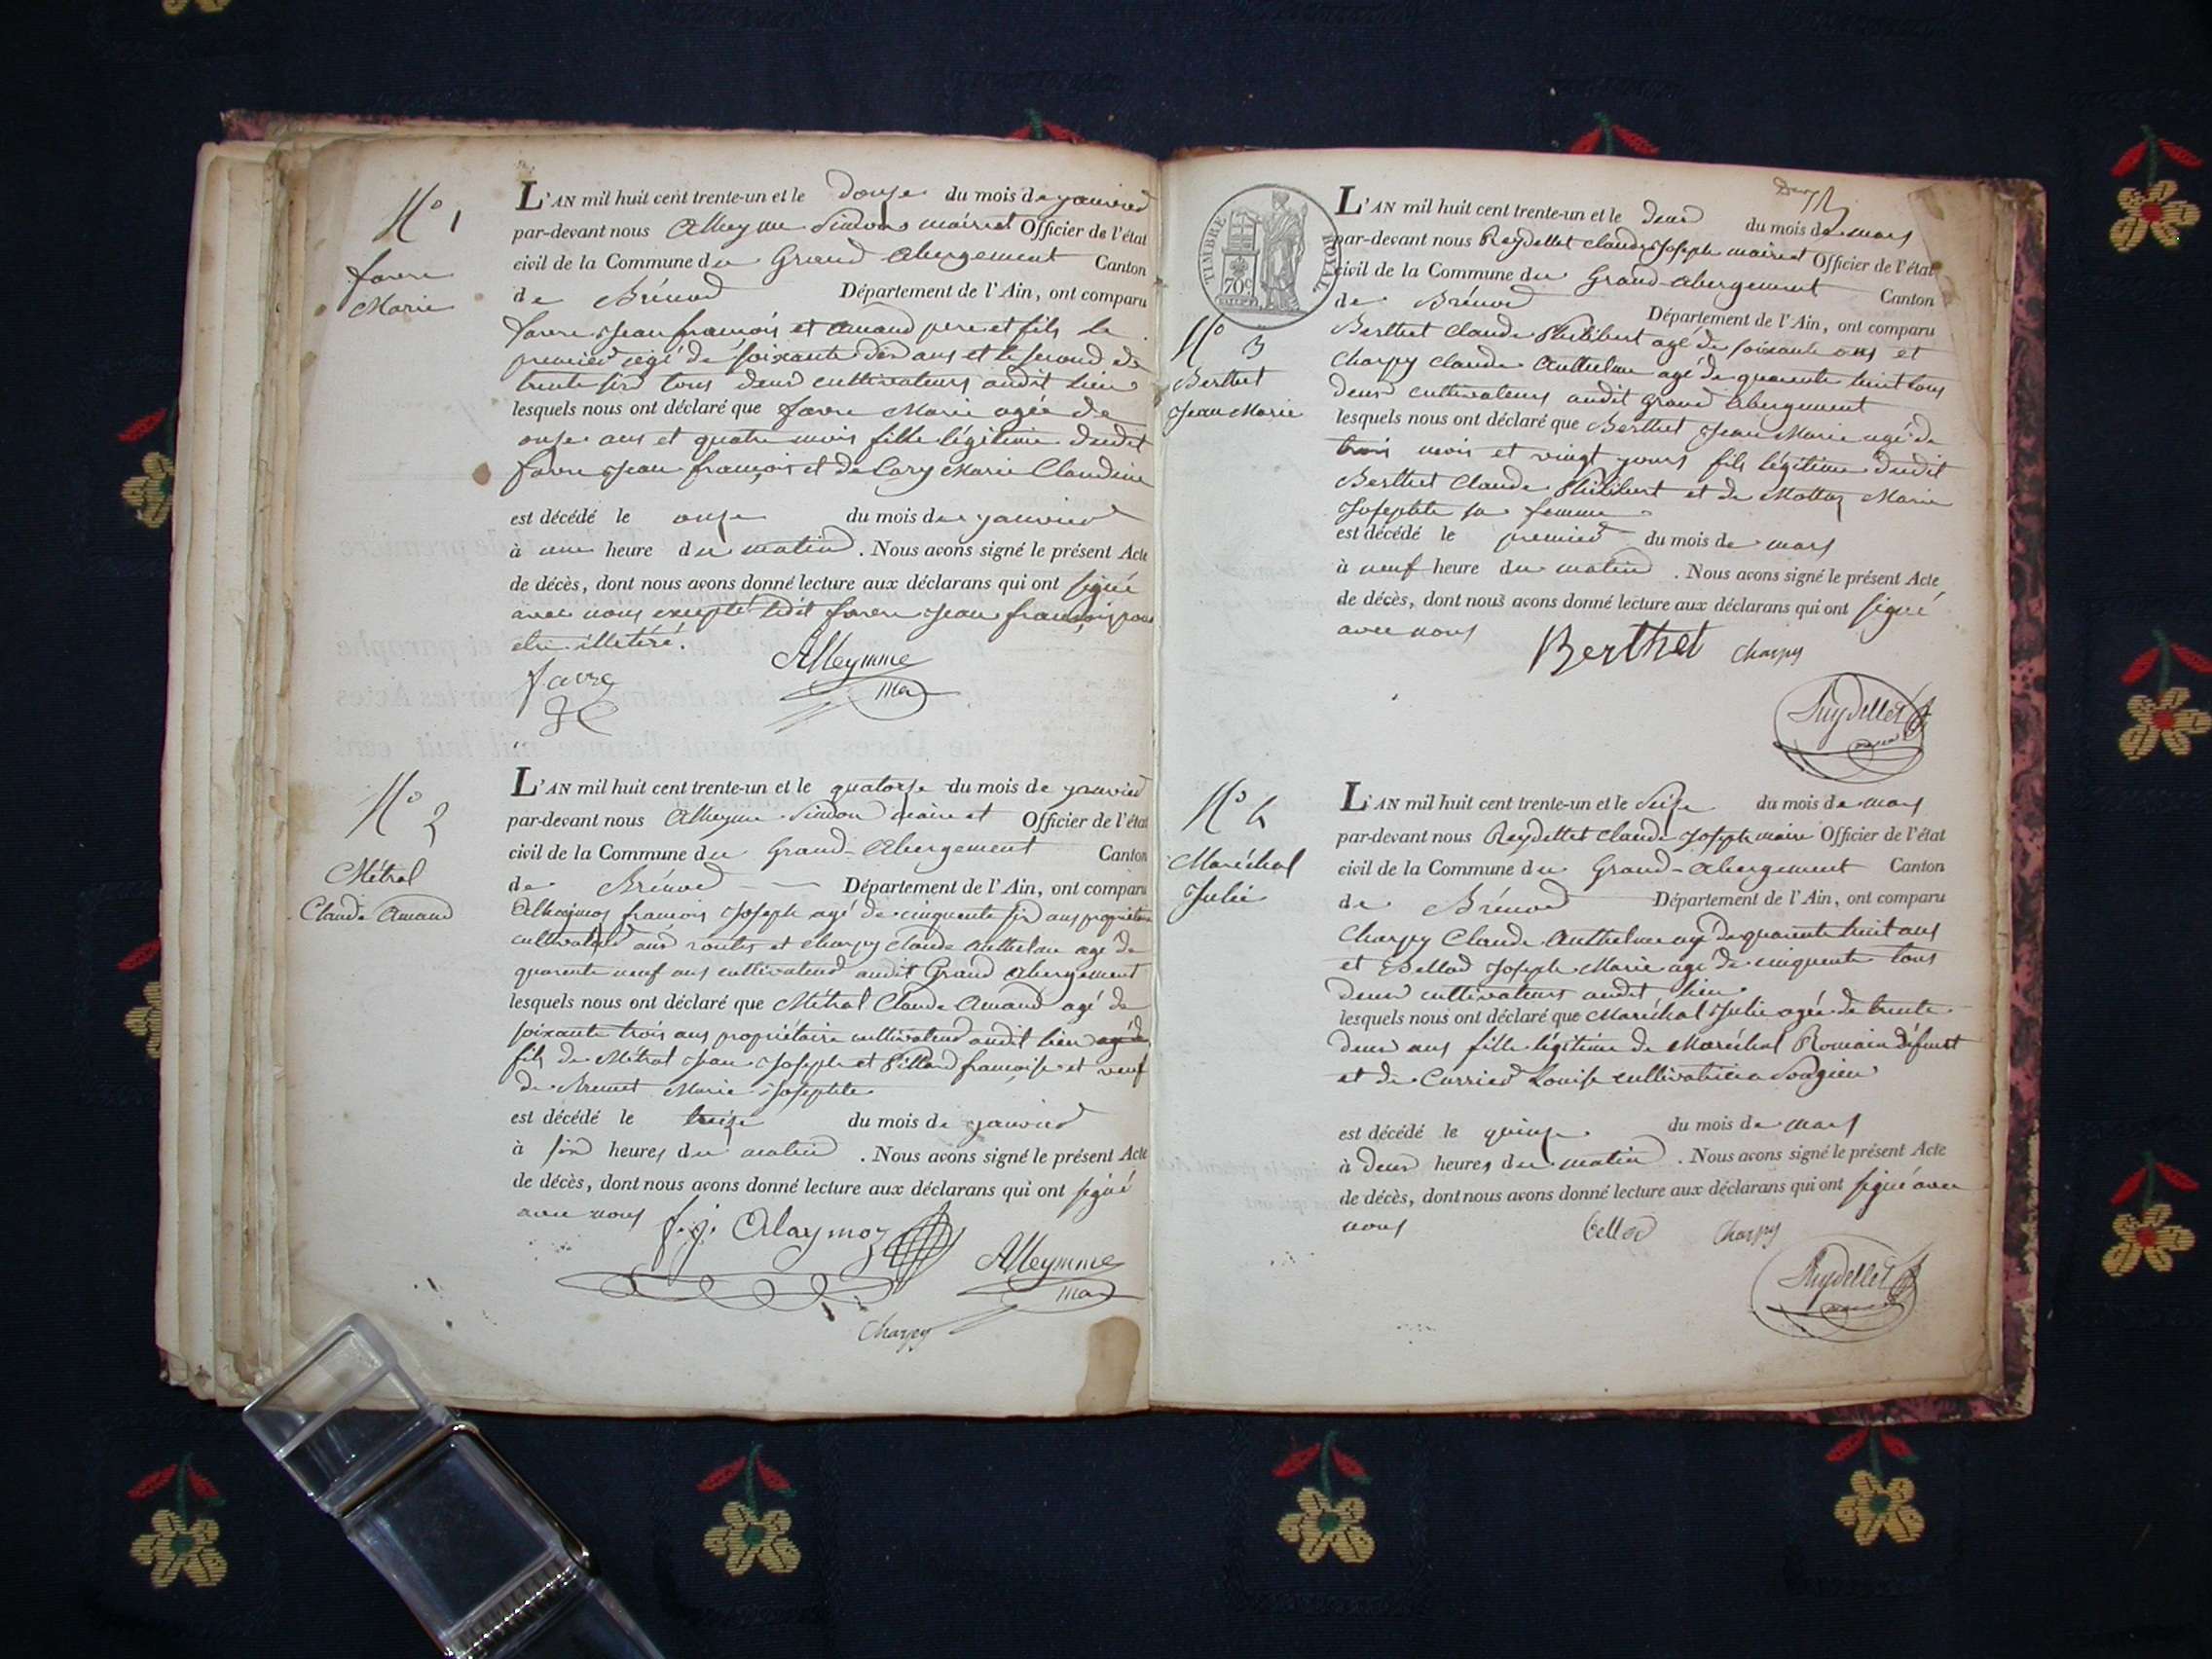 N° 1
favre
Marie
L'AN mil huit cent trente-un et le douze du mois de janvier
par-devant nous Alleymme Simon maire et Officier de l'état
civil de la Commune du Grand abergement Canton
de Brénod Département de l'Ain, ont comparu
favre Jean françois et amand pere et fils le
premier agé de soixante dix ans et le second de
trente six tous deux cultivateurs audit lieu
lesquels nous ont déclaré que favre Marie agée de
onze ans et quatre mois fille légitime dudit
favre Jean françois et de Cary Marie Claudine
est décédé le onze du mois de janvier
à une heure du matin. Nous avons signé le présent Acte
de décès, dont nous avons donné lecture aux déclarans qui ont signé
avec nous excepté ledit favre Jean françois pour
etre illetiré.
favre
Alleymme
mre
N° 2
Métral
Claude Amand
L'AN mil huit cent trente-un et le quatorze du mois de janvier
par-devant nous Alleymme Simon maire et Officier de l'état
civil de la Commune du Grand-Abergement Canton
de Brénod Département de l'Ain, ont comparu
françois Joseph agé de cinquante six ans propriétaire
cultivateur aux routes et charpy claude anthelme agé de
quarente neuf ans cultivateur audit Grand abergement
lesquels nous ont déclaré que Métral Claude Amand agé de
soixante trois ans propriétaire cultivateur audit lieu agé de
fils de Métral Jean Joseph et Billand françoise et veuf
de Brunet Marie Josephte
est décédé le treize du mois de janvier
à six heures du matin. Nous avons signé le présent Acte
de décès, dont nous avons donné lecture aux déclarans qui ont signé
avec nous
f. j. Alaymoz
Alleymme
mre
Charpy
TIMBRE ROYAL
70c
Deux
L'AN mil huit cent trente-un et le deux du mois de mars
par-devant nous Reydellet claude Joseph maire et Officier de l'état
civil de la Commune du Grand-abergement Canton
de Brénod Département de l'Ain, ont comparu
N° 3
Berthet
Jean Marie
Berthet Claude Philibert agé de soixante ans et
Charpy claude Anthelme agé de quarente huit tous
deux cultivateurs audit grand abergement
lesquels nous ont déclaré que Berthet Jean Marie agé de
trois mois et vingt jours fils légitime dudit
Berthet Claude Philibert et de Mottaz Marie
Josephte sa femme
est décédé le premier du mois de mars
à neuf heure du matin. Nous avons signé le présent Acte
de décès, dont nous avons donné lecture aux déclarans qui ont signé
avec nous
Berthet charpy
Reydellet
N° 4
Maréchal
Julie
L'AN mil huit cent trente-un et le Seize du mois de mars
par-devant nous Reydellet claude Joseph maire Officier de l'état
civil de la Commune du Grand-abergement Canton
de Brénod Département de l'Ain, ont comparu
Charpy Claude Anthelme agé de quarente huit ans
et Bellod Joseph Marie agé de cinquente tous
deux cultivateurs audit lieu
lesquels nous ont déclaré que Maréchal Julie agée de trente
deux ans fille légitime de Maréchal Romain défunt
et de Louise cultivatrice
est décédé le quinze du mois de mars
à deux heures du matin. Nous avons signé le présent Acte
de décès, dont nous avons donné lecture aux déclarans qui ont signé avec
nous
bellod Charpy
Reydellet